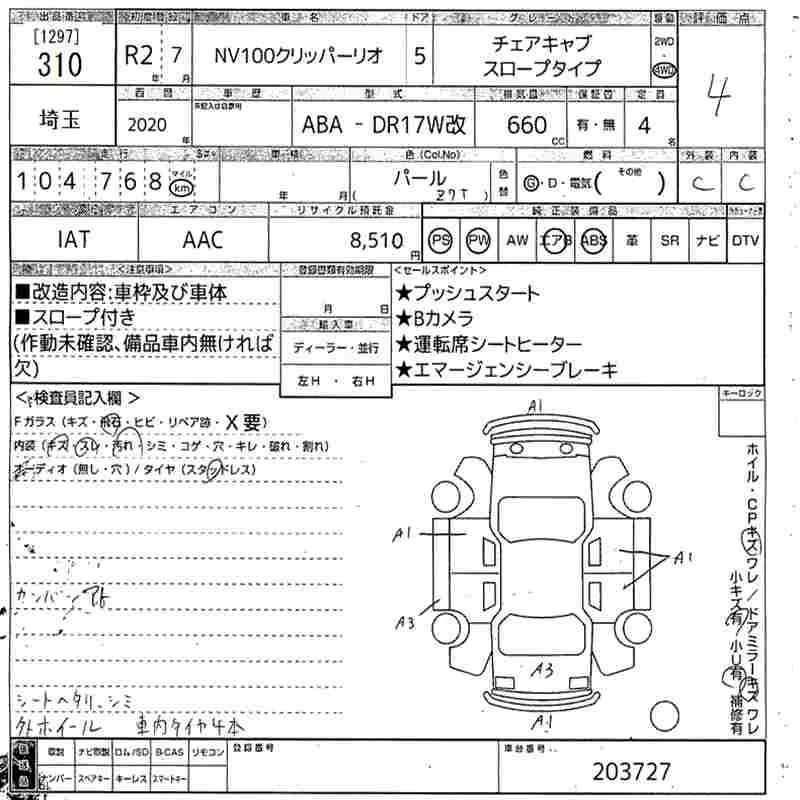 出品番号 初度登録 車名 ドア グレード 評価点
[1297]
310
R2 年 7 月
NV100クリッパーリオ
5
チェアキャブ
スロープタイプ
2WD
・
4WD
4
埼玉
西暦 車歴 型式 排気量 保証書 定員
2020 年
ABA - DR17W改
660 CC
有・無
4 名
走行 車検 色(Col.No) 燃料 外装 内装
104768 マイル km
年 月
パール
( Z7T )
色替
G・D・電気( その他 )
C C
エアコン リサイクル預託金 純正装備品
IAT AAC 8,510 円
PS PW AW エアB ABS 革 SR ナビ DTV
<注意事項> 登録書類有効期限 <セールスポイント>
■改造内容:車枠及び車体
■スロープ付き
(作動未確認、備品車内無ければ
欠)
月 日
輸入車
ディーラー・並行
左H ・ 右H
★プッシュスタート
★Bカメラ
★運転席シートヒーター
★エマージェンシーブレーキ
<検査員記入欄>
キーロック
Fガラス(キズ・飛石・ヒビ・リペア跡・X要)
内装(キズ・スレ・汚れ・シミ・コゲ・穴・キレ・破れ・割れ)
オーディオ(無し・穴)/タイヤ(スタッドレス)
A1
A1
A1
A3
A3
A1
ホイル・CPキズワレ/ドアミラーキズワレ
小キズ有/小U有/補修有
シートヘタリ、シミ
外ホイール 車内タイヤ4本
取説 ナビ取説 ロム/SD B-CAS リモコン
ナンバー スペアキー キーレス スマートキー
登録番号
車台番号
203727